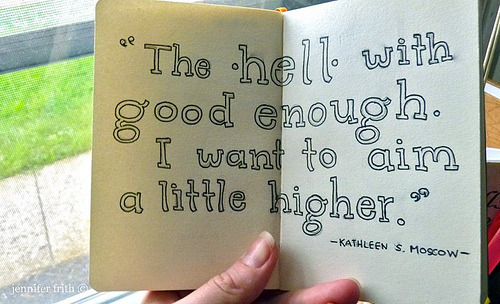 “The ·hell· with
good enough.
I want to aim
a little higher.”
-KATHLEEN S. MOSCOW-
jennifer frith ©